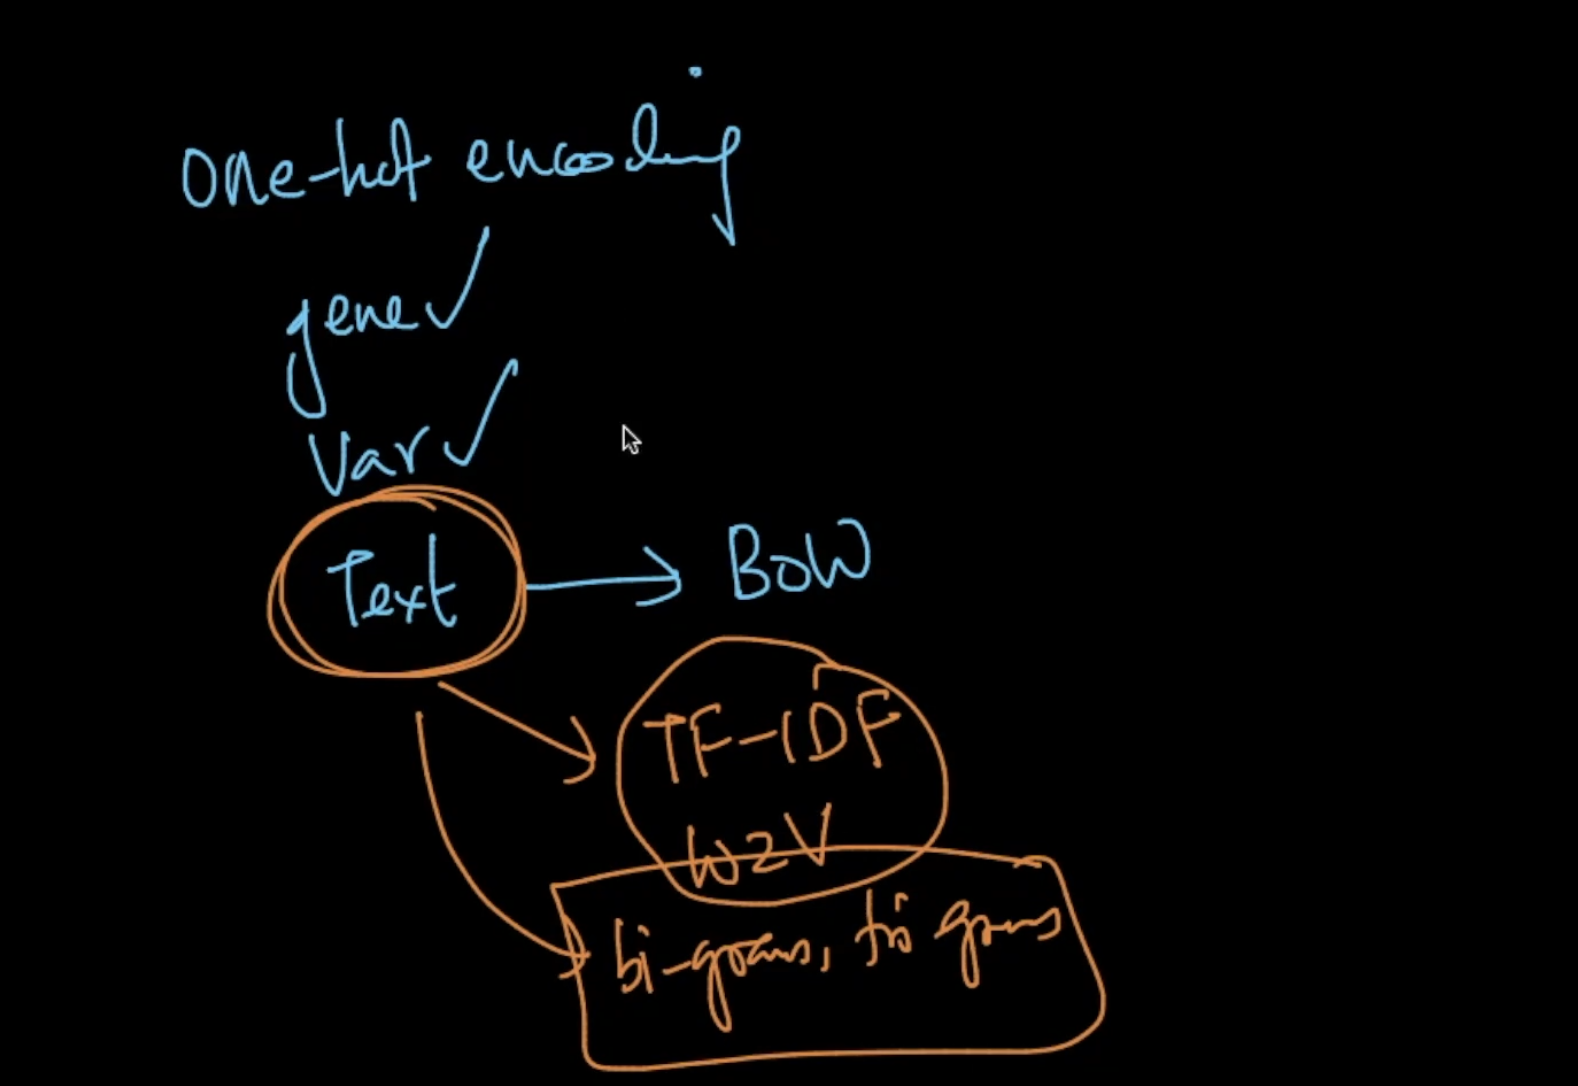 one-hot encoding
gene ✓
Var ✓
Text → BoW
TF-IDF
W2V
bi-grams, tri grams